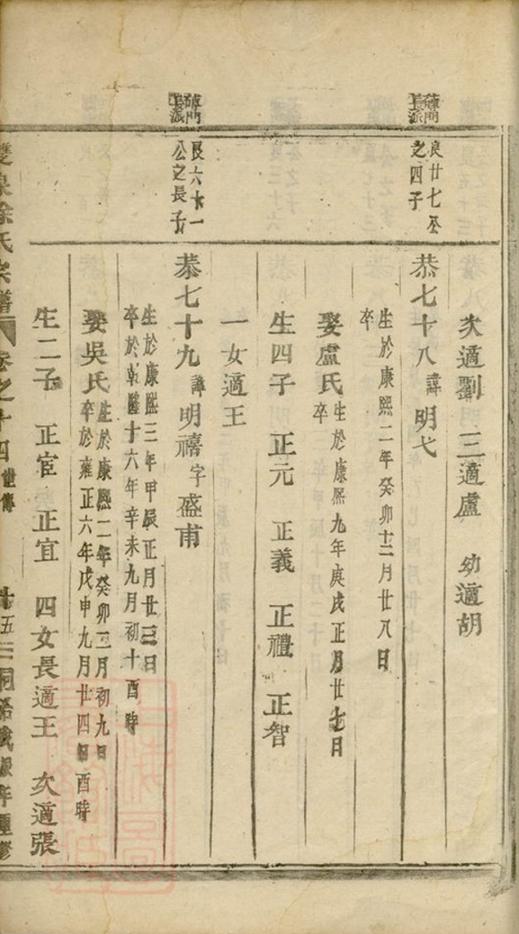 次適劉　三適盧　幼適胡
長派
良廿七公
之四子
恭七十八諱明弋
生於康熙二年癸卯十二月廿八日
卒
娶盧氏
生於康熙九年庚戌正月廿七日
卒
生四子　正元　正義　正禮　正智
一女適王
長派
良六十一
公之長子
恭七十九諱明禧字盛甫
生於康熙三年甲辰正月廿三日
卒於乾隆十六年辛未九月初十酉時
娶吳氏
生於康熙二年癸卯三月初九日
卒於雍正六年戊申九月廿四日酉時
生二子　正宦　正宜　四女長適王　次適張
徐氏宗譜
卷之十四
世傳